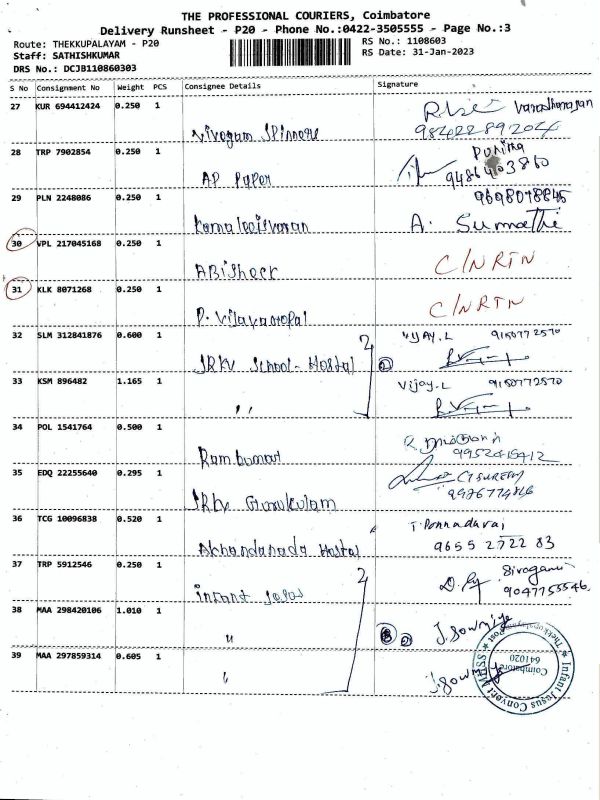 THE PROFESSIONAL COURIERS, Coimbatore
Delivery Runsheet - P20 - Phone No.:0422-3505555 - Page No.:3
Route: THEKKUPALAYAM - P20 RS No.: 1108603
Staff: SATHISHKUMAR RS Date: 31-Jan-2023
DRS No.: DCJB110860303
S No Consignment No Weight PCS Consignee Details Signature
27 KUR 694412424 0.250 1
28 TRP 7902854 0.250 1 AP Paper Punitha
29 PLN 2248086 0.250 1 A. Sumathi
30 VPL 217045168 0.250 1 ABisheck C/N RTN
31 KLK 8071268 0.250 1 C/N RTN
32 SLM 312841876 0.600 1 SRKV School - Hostal 2 Vijay.L 9150772570
33 KSM 896482 1.165 1 " Vijay.L 9150772570
34 POL 1541764 0.500 1 Ramkumar
35 EDQ 22255640 0.295 1 SRKV Gurukulam
36 TCG 10096838 0.520 1 Akhandanada Hostal T. Ponnadurai
9655 2722 83
37 TRP 5912546 0.250 1 infant 2
38 MAA 298420106 1.010 1 " 2 J. Sowmiya
39 MAA 297859314 0.605 1 " J. Sowmiya
Infant Jesus Convent
Coimbatore
641020